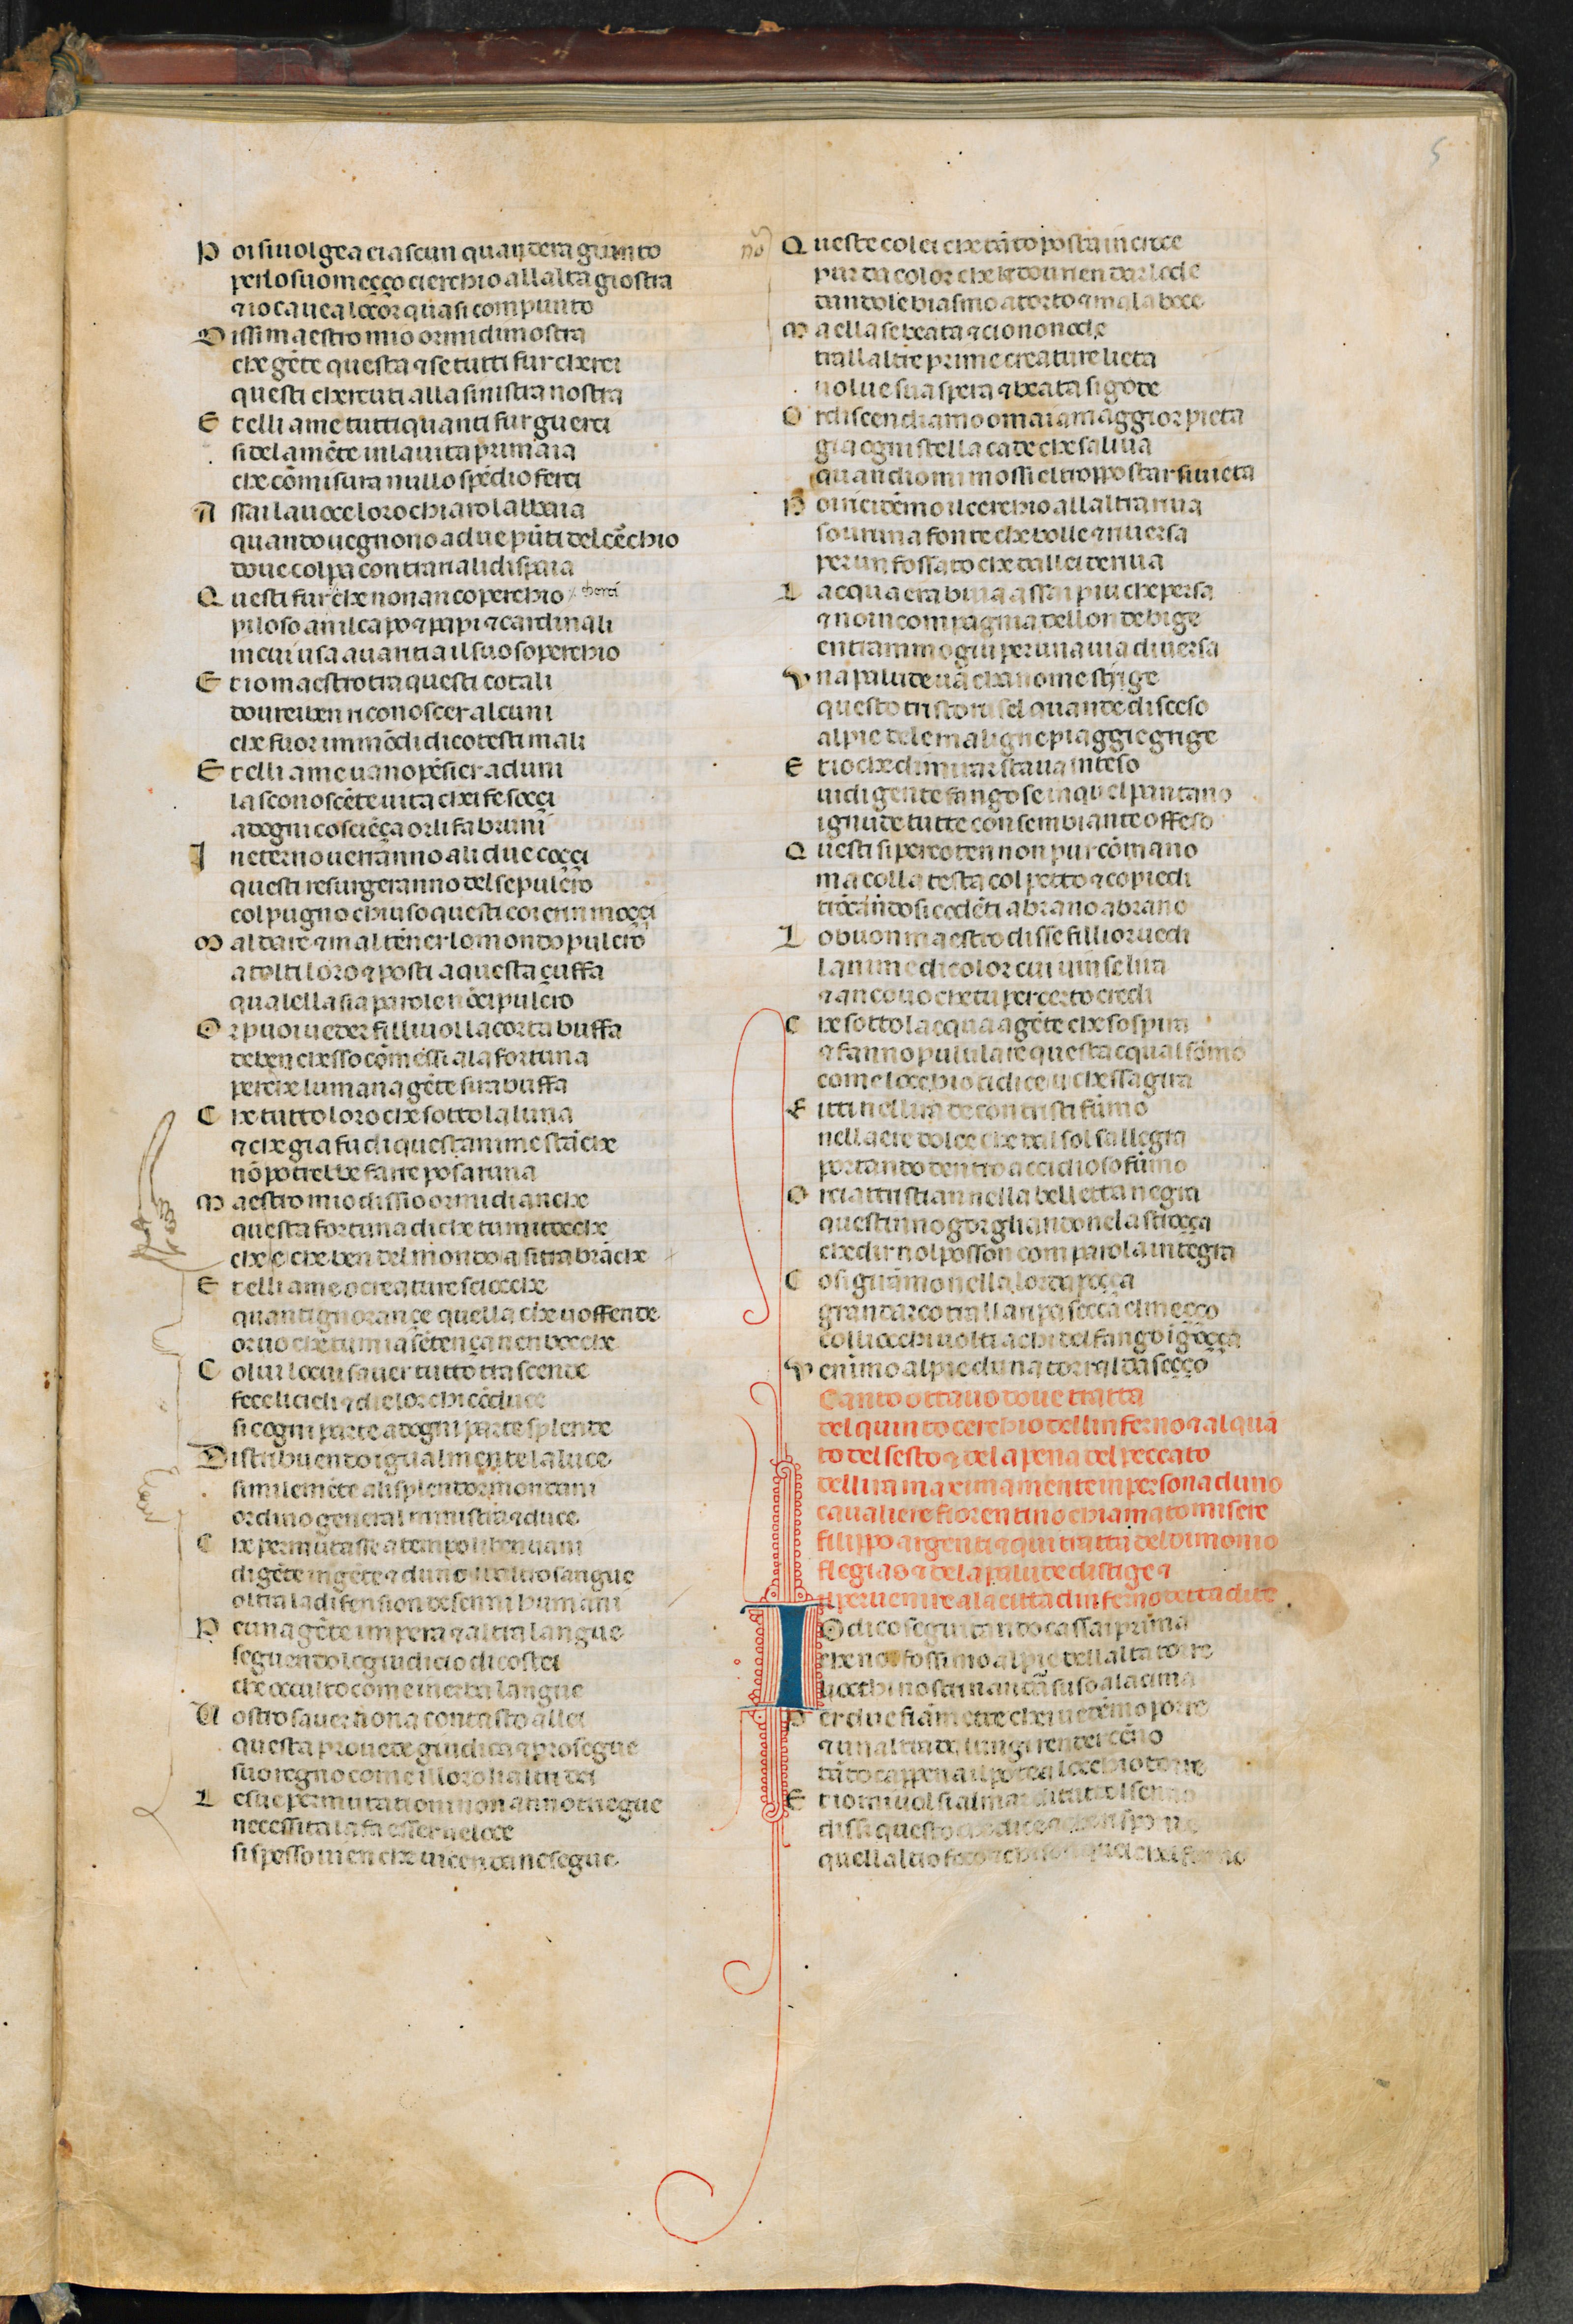 5
P oi si uolgea ciascun quandera giunto
perlo suo meçço cierchio allaltra giostra
⁊ io cauea lo cor quasi compunto
D issi maestro mio ormi dimostra
che gēte questa ⁊ se tutti fur cherci
questi chercuti alla sinistra nostra
E telli ame tutti quanti fur guerci
si dela mēte in la uita primaia
che cō misura nullo spēdio ferci
A ssai lauoce loro chiaro labbaia
quando uegnono a due pūti del cērchio
doue colpa contraria li dispaia
Q uesti fur che non an coperchio cherci
piloso an il capo ⁊ papi ⁊ cardinali
in cui usa auaritia il suo soperchio
E t io maestro tra questi cotali
dourei ben riconoscer alcuni
che fuor immōdi di cotesti mali
E telli ame uano pēsier aduni
la sconoscēte uita chei fe soççi
ad ogni cosciēça or li fa bruni
I n eterno uerranno ali due coççi
questi resurgeranno del sepulcro
col pugno chiuso questi coi crin moççi
M al dare ⁊ mal tener lo mondo pulcro
a tolti loro ⁊ posti a questa çuffa
qualella sia parole nōci pulcro
O r puoi ueder filliuol la corta buffa
de ben chesso cōmessi ala fortuna
perche lumana gēte si rabuffa
C he tutto loro che sotto la luna
⁊ che gia fu di queste anime stāche
nō potrebbe farre posar una
M aestro mio dissio ormi di anche
questa fortuna di che tu mi tocche
che e che ben del mondo a si tra brāche
E telli ame o creature sciocche
quanta ignorance quella che uoffende
or uo che tu mia sētença nen bocche
C olui lo cui sauer tutto trascende
fece li cieli ⁊ die lor chi cōduce
si cogni parte ad ogni parte splende
D istribuendo igualmente la luce
similemēte ali splendor mondani
ordino general ministra ⁊ duce
C he permutasse a tempo li ben uani
di gēte in gēte ⁊ duno in altro sangue
oltra la difension de senni humani
P er una gēte impera ⁊ altra langue
seguendo lo giudicio di costei
che occulto come in erba langue
V ostro sauer non a contasto a llei
questa prouede giudica ⁊ prosegue
suo regno come il loro li altri dei
L e sue permutationi non anno triegue
necessita la fa esser ueloce
si spesso uien che uicenda nesegue
no
Q ueste colei che tāto posta in croce
pur da color che le dourien dar lode
dandole biasmo a torto ⁊ mala boce
M a ella se beata ⁊ cio non ode
tra llaltre prime creature lieta
uolue sua spera ⁊ beata si gode
O r discendiamo omai a maggior pieta
gia ogni stella cade che saliua
quandio mi mossi el troppo star si uieta
N oi ricidēmo il cerchio allaltra riua
sour una fonte che bolle ⁊ riuersa
per un fossato che dallei deriua
L acqua era buia assai piu che persa
⁊ noi in compagnia dellonde bige
entrammo giu per una uia diuersa
V na palude ua cha nome stige
questo tristo ruscel quande disceso
al pie dele maligne piagge grige
E t io che di mirar staua inteso
uidi gente fangose in quel pantano
ignude tutte con sembiante offeso
Q uesti si percotean non pur cō mano
ma colla testa col petto ⁊ co piedi
trōcādosi co dēti a brano a brano
L o buon maestro disse fillio or uedi
lanime di color cui uinse lira
⁊ anco uo che tu per certo credi
C he sotto lacqua a gēte che sospira
⁊ fanno pululare questacqua al sōmo
come locchio ti dice u che ssagira
F itti nel limo dicon tristi fūmo
nell aere dolce che dal sol sallegra
portando dentro accidioso fūmo
O r ci attristian nella belletta negra
questinno gorgliando ne la stroçça
che dir nol posson com parola integra
C osi girāmo nella lorda poçça
grandarco tralla ripa secca el meçço
colli occhi uolti a chi del fango igoçça
V enīmo al pie duna torral da seççō
Canto ottauo doue tratta
del quinto cerchio dellinferno ⁊ alquā
to del sesto ⁊ dela pena del peccato
dellira maximamente in persona duno
caualiere fiorentino chiamato misere
filippo argenti ⁊ qui tratta del dimonio
flegiao ⁊ dela palude di stige ⁊
il peruenire ala citta dinferno detta dite
I O dico seguitando cassai prima
che noi fossimo al pie dellalta torre
liocchi nostri nandār suso ala cima
P er due fiāmette chei uedēmo porre
⁊ unaltra da lungi render cēno
tāto cappena il potea locchio torre
E t io mi uolsi al mar di tutto l senno
dissi questo che dice ⁊ che rispone
quellaltro foco ⁊ chi son quei chel fenno